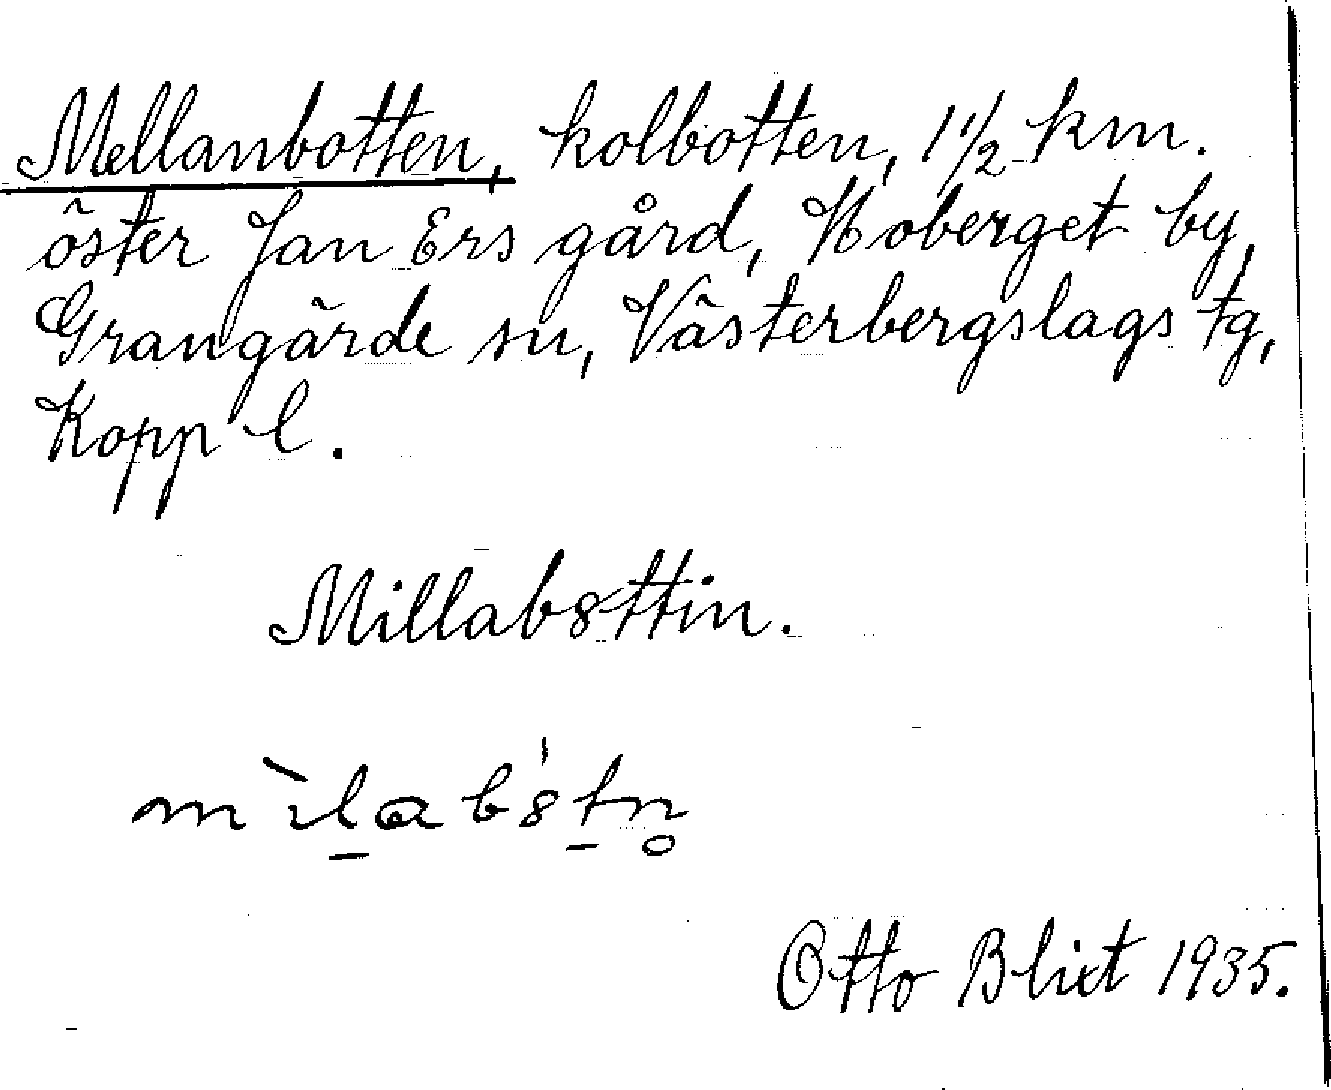 Mellanbotten, kolbotten, 1½ km.
öster Jan Ers gård, Moberget by,
Grangärde sn, Västerbergslags tg,
Kopp l.
Millab8ttin.
mìlab8̍tn̥
Otto Blixt 1935.